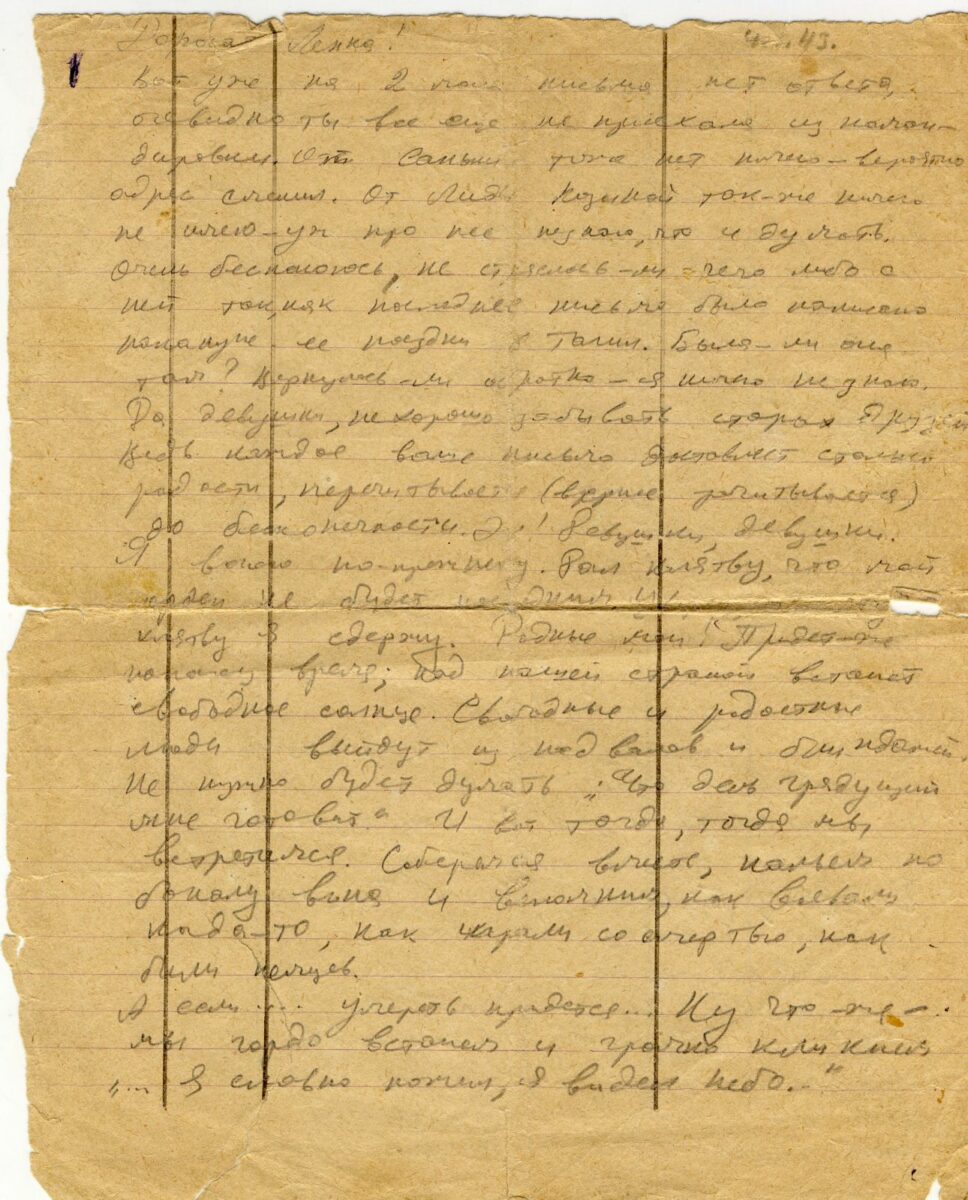 Дорогая Ленка! 43.
Вот уже на 2 моих письма нет ответа,
очевидно ты все еще не приехала из коман-
дировки. От Саньки тоже нет ничего – вероятно
адрес сменил. От Лиды Козиной так-же ничего
не имею – уж про нее не знаю, что и думать.
Очень беспокоюсь, не стряслось-ли чего либо с
ней так, как последнее письмо было написано
накануне ее поездки в Тагил. Была-ли она
там? Вернулась-ли обратно – я ничего не знаю.
Да девушки, не хорошо забывать старых друзей
Ведь каждое ваше письмо доставляет столько
радости, перечитывается (вернее зачитывается)
до бесконечности. Эх! Девушки, девушки.
Я воюю по-прежнему. Дал клятву, что мой
орден не будет последним и
клятву я сдержу. Родные мои! Придет-же
такому время; над нашей страной встанет
свободное солнце. Свободные и радостные
люди выйдут из подвалов и блиндажей.
Не нужно будет думать „Что день грядущий
мне готовит“ И вот тогда, тогда мы
встретимся. Соберемся вместе, нальем по
бокалу вина и вспомним, как воевали
когда-то, как играли со смертью, как
били немцев.
А если .... умереть придется... Ну что-же –
мы гордо встанем и громко кликнем
„... Я славно пожил, я видел небо..“